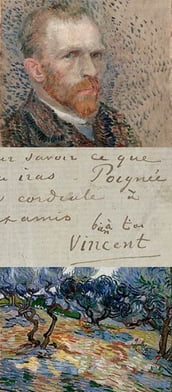 ur savoir ce que
u iras - Poignée
s cordiale à
t amis
bien à toi
Vincent